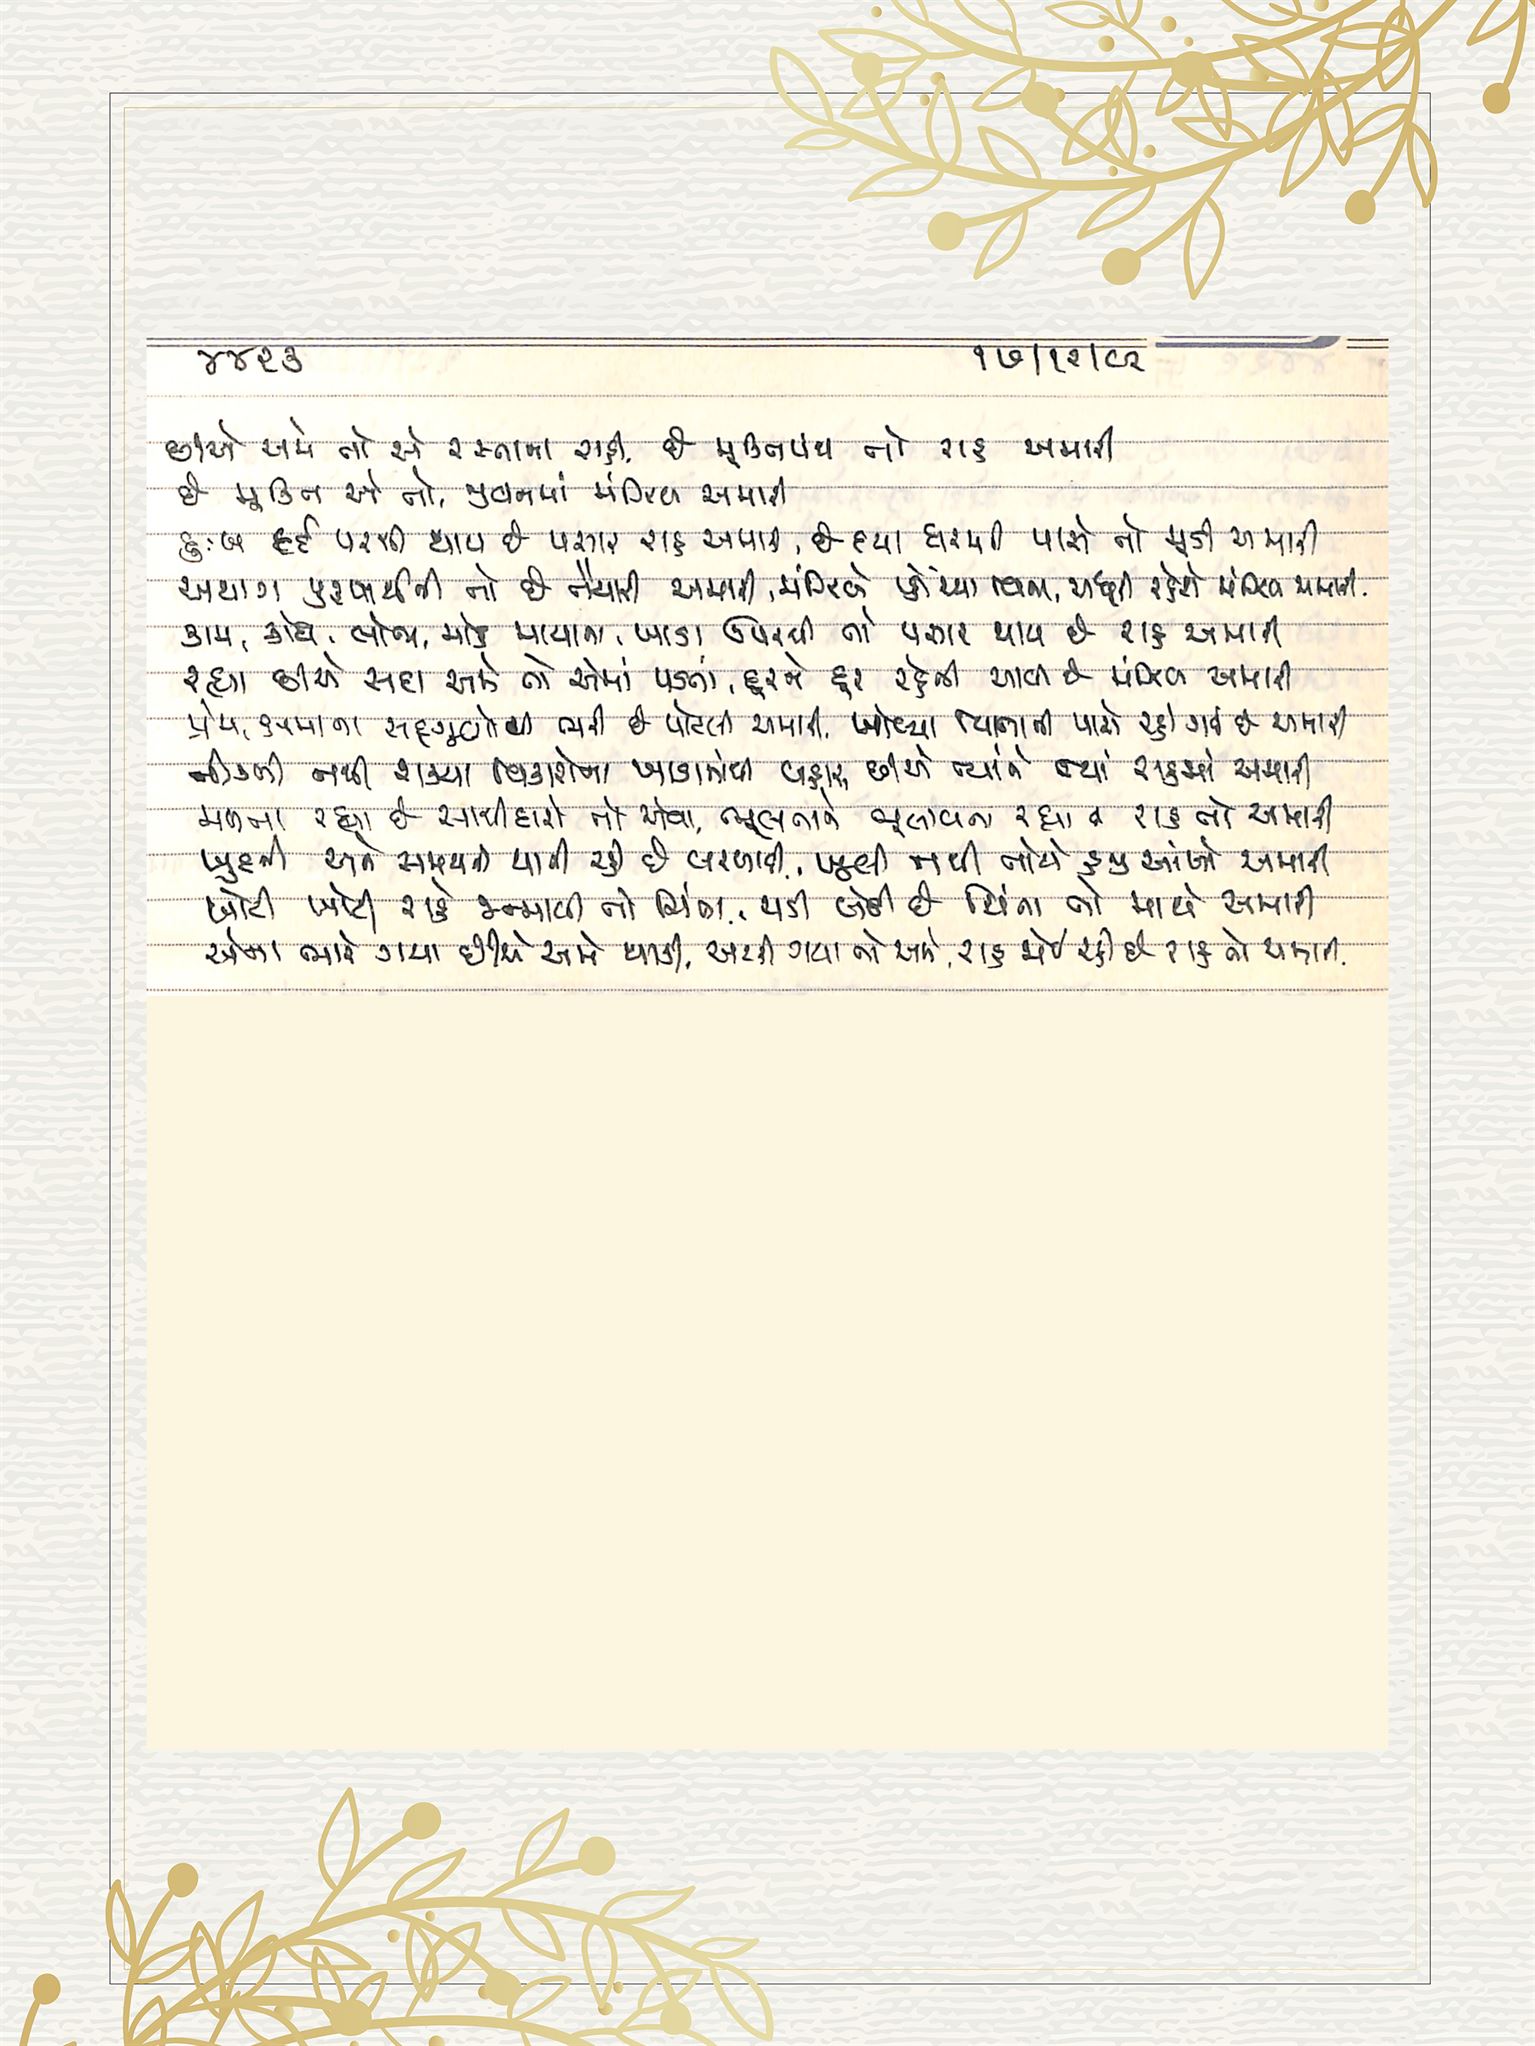 ૪૪૨૩ ૧૭/૧૨/૯૨
છીએ અમે તો એ રસ્તાના રાહી, છે મૂક્તિપંથ તો રાહ અમારી
છે મૂક્તિ એ તો, જીવનમાં મંઝિલ અમારી
દુઃખ દર્દ પરથી થાય છે પસાર રાહ અમારી, છે દયા ધરમની પાસે તો મૂડી અમારી
અથાગ પુરુષાર્થની તો છે તૈયારી અમારી, મંઝિલે પહોંચ્યા વિના, અધૂરી રહેશે મંઝિલ અમારી.
કામ, ક્રોધ, લોભ, મોહ માયાના, ખાડા ઉપરથી તો પસાર થાય છે રાહ અમારી
રહ્યા છીએ સદા અમે તો એમાં પડતાં, દૂરને દૂર રહેતી આવી છે મંઝિલ અમારી
પ્રેમ, ક્ષમાના સદ્દગુણોથી ભરી છે પોટલી અમારી, ખોલ્યા વિનાની પાસે રહી ગઈ છે અમારી
નીકળી નથી શક્યા વિકારોના ખાડામાંથી બહાર, છીએ ત્યાંને ત્યાં રાહમાં અમારી
મળતા રહ્યા છે સાથીદારો તો એવા, ભૂલતાને ભૂલાવતા રહ્યા છે રાહ તો અમારી
ખુદની અને સમયની પાની રહી છે બરબાદી, ખૂલી નથી તોયે હજી આંખો અમારી
ખોટી ખોટી રાહે જન્માવી તો ચિંતા, ચડી બેઠી છે ચિંતા તો માથે અમારી
એના ભારે ગયા છીએ અમે થાકી, અટકી ગયા તો અમે, રાહ જોઈ રહી છે રાહ તો અમારી.